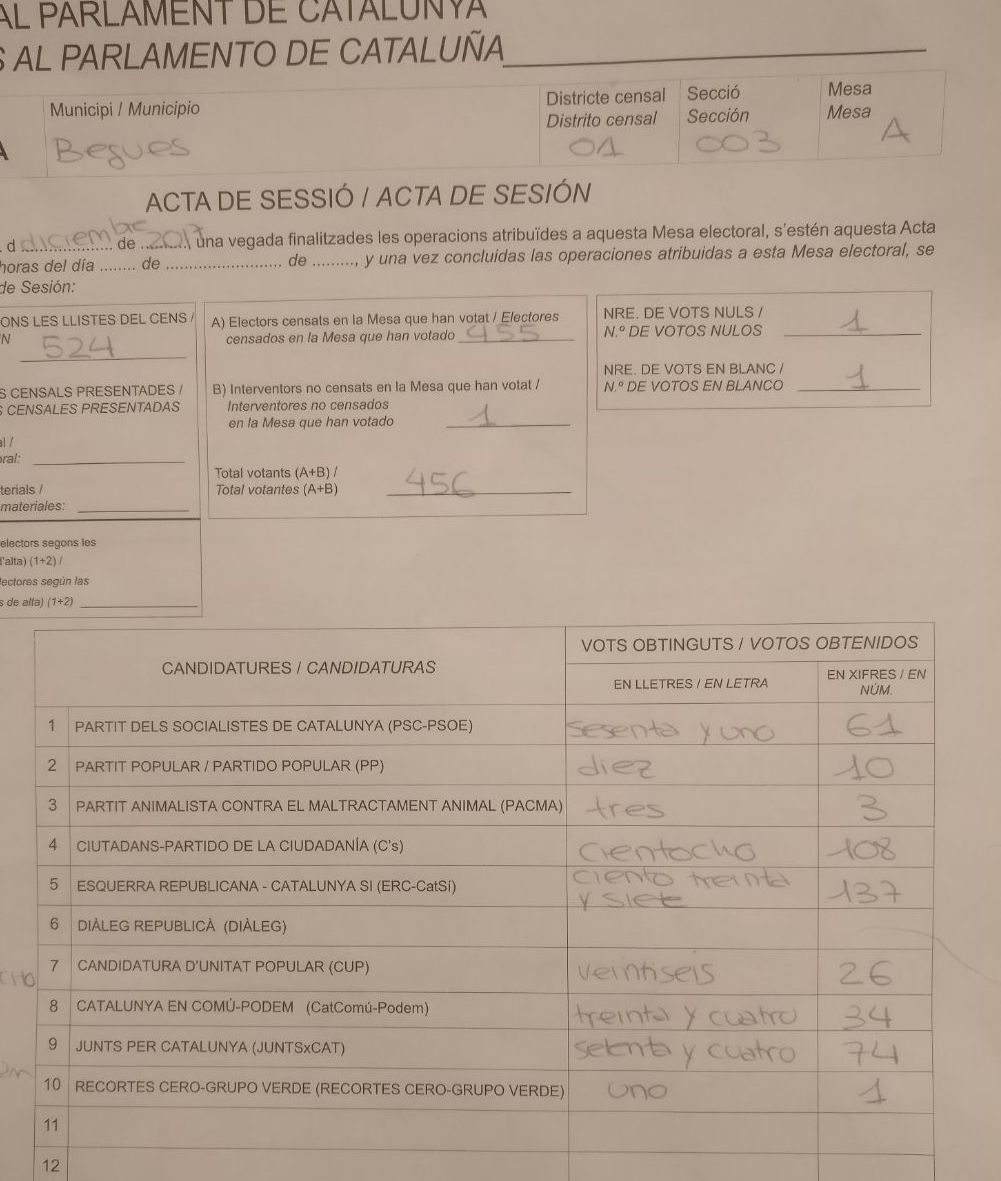 AL PARLAMENT DE CATALUNYA
S AL PARLAMENTO DE CATALUÑA
Municipi / Municipio
Districte censal
Distrito censal
Secció
Sección
Mesa
Mesa
A
Begues
01
003
A
ACTA DE SESSIÓ / ACTA DE SESIÓN
d diciembre de 2017, una vegada finalitzades les operacions atribuïdes a aquesta Mesa electoral, s'estén aquesta Acta
horas del día ........ de .......................... de ........., y una vez concluidas las operaciones atribuidas a esta Mesa electoral, se
de Sesión:
ONS LES LLISTES DEL CENS /
N
524
S CENSALS PRESENTADES /
S CENSALES PRESENTADAS
al /
oral:
terials /
materiales:
electors segons les
d'alta) (1+2) /
lectores según las
s de alta) (1+2)
A) Electors censats en la Mesa que han votat / Electores
censados en la Mesa que han votado 455
B) Interventors no censats en la Mesa que han votat /
Interventores no censados
en la Mesa que han votado 1
Total votants (A+B) /
Total votantes (A+B) 456
NRE. DE VOTS NULS /
N.º DE VOTOS NULOS 1
NRE. DE VOTS EN BLANC /
N.º DE VOTOS EN BLANCO 1
CANDIDATURES / CANDIDATURAS
VOTS OBTINGUTS / VOTOS OBTENIDOS
EN LLETRES / EN LETRA
EN XIFRES / EN
NÚM.
1 PARTIT DELS SOCIALISTES DE CATALUNYA (PSC-PSOE) sesenta y uno 61
2 PARTIT POPULAR / PARTIDO POPULAR (PP) diez 10
3 PARTIT ANIMALISTA CONTRA EL MALTRACTAMENT ANIMAL (PACMA) tres 3
4 CIUTADANS-PARTIDO DE LA CIUDADANÍA (C's) cientocho 108
5 ESQUERRA REPUBLICANA - CATALUNYA SI (ERC-CatSí) ciento treinta
y siete 137
6 DIÀLEG REPUBLICÀ (DIÀLEG)
7 CANDIDATURA D'UNITAT POPULAR (CUP) veintiseis 26
8 CATALUNYA EN COMÚ-PODEM (CatComú-Podem) treinta y cuatro 34
9 JUNTS PER CATALUNYA (JUNTSxCAT) setenta y cuatro 74
10 RECORTES CERO-GRUPO VERDE (RECORTES CERO-GRUPO VERDE) uno 1
11
12